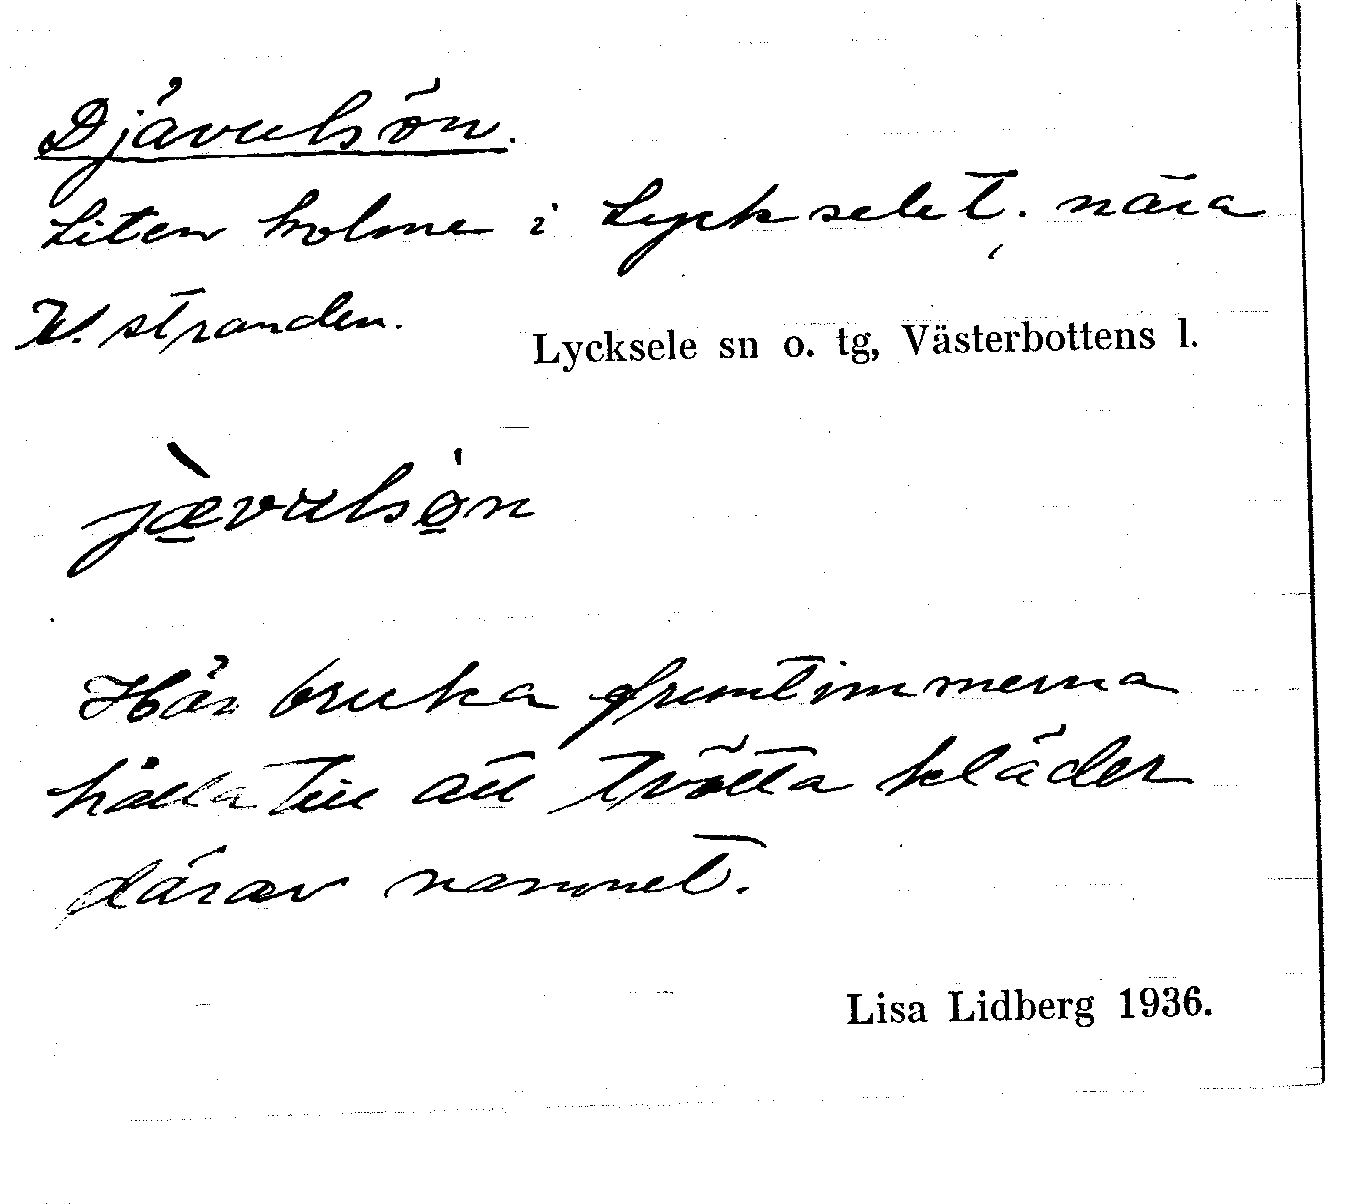 Djävulsön.
Liten holme i Lyckselet, nära
V. stranden.
Lycksele sn o. tg, Västerbottens l.
jævulsön
Här bruka fruntimmerna
hålla till att tvätta kläder
därav namnet.
Lisa Lidberg 1936.